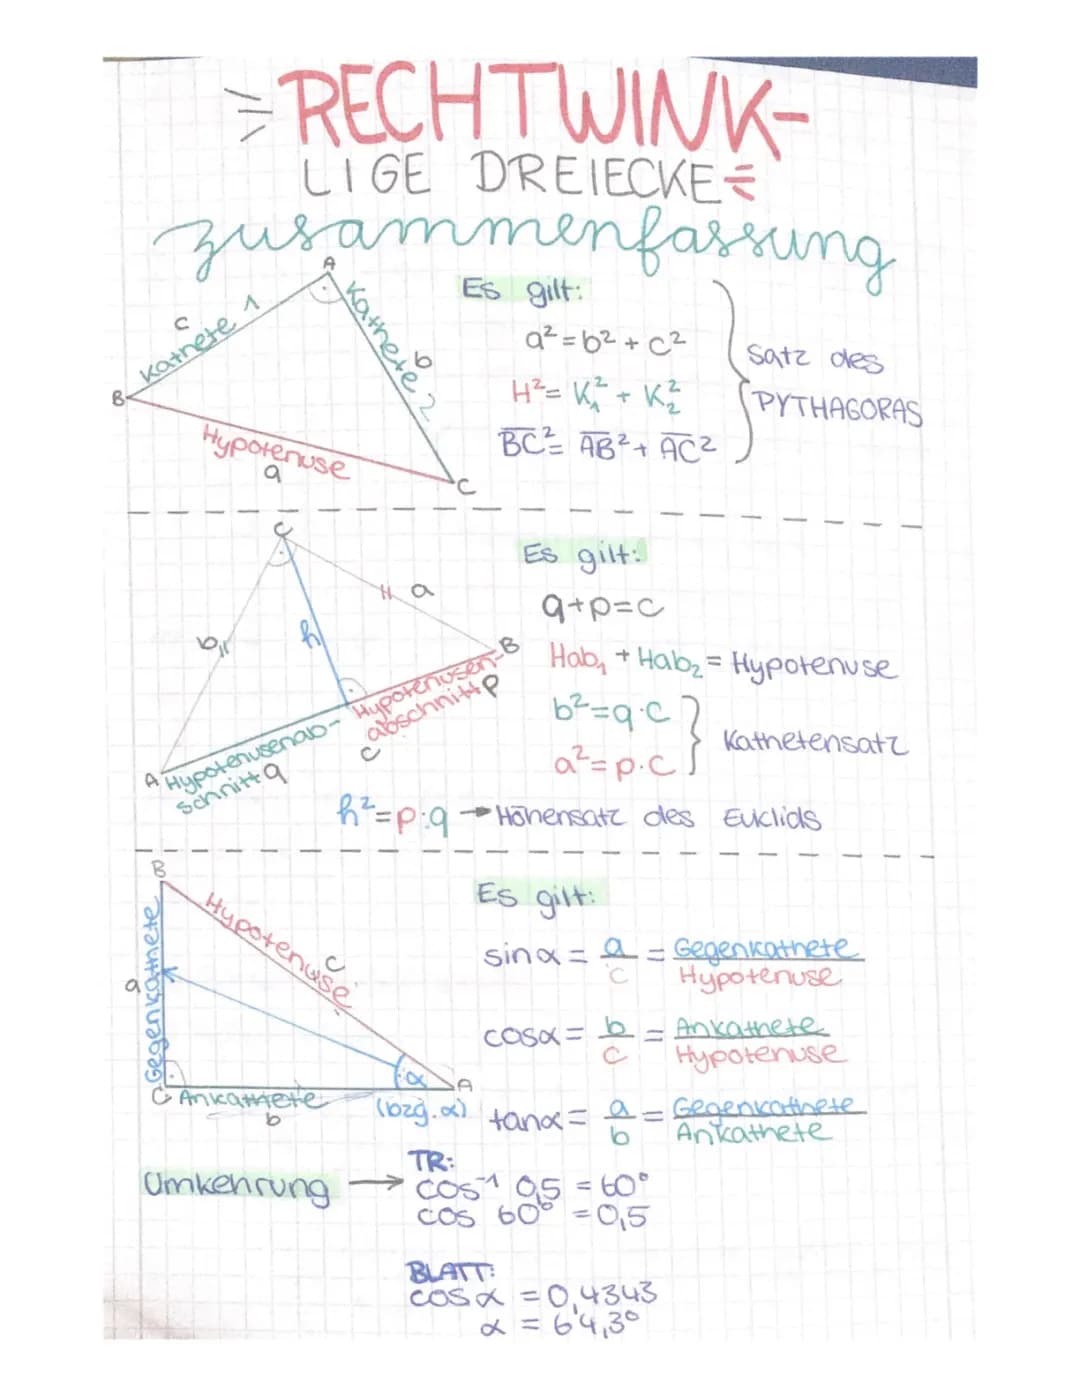 RECHTWINK-
LIGE DREIECKE
zusammenfassung
A
c
Kathete 1
Kathete 2
b
B
Hypotenuse
a
C
Es gilt:
a² = b² + c²
H² = K₁² + K₂²
BC² = AB² + AC²
Satz des
PYTHAGORAS
C
b
h
a
B
A
Hypotenusenab-
schnitt q
Hypotenusen-
abschnitt p
c
Es gilt:
q+p=c
Hab₁ + Hab₂ = Hypotenuse
b²=q·c
a²=p·c
Kathetensatz
h²=p:q → Höhensatz des Euklids
B
Hypotenuse
c
a
Gegenkathete
α
A
C
Ankathete
b
(bzg. α)
Es gilt:
sin α = a/c = Gegenkathete/Hypotenuse
cos α = b/c = Ankathete/Hypotenuse
tan α = a/b = Gegenkathete/Ankathete
Umkehrung →
TR:
cos⁻¹ 0,5 = 60°
cos 60° = 0,5
BLATT:
cos α = 0,4343
α = 64,3°